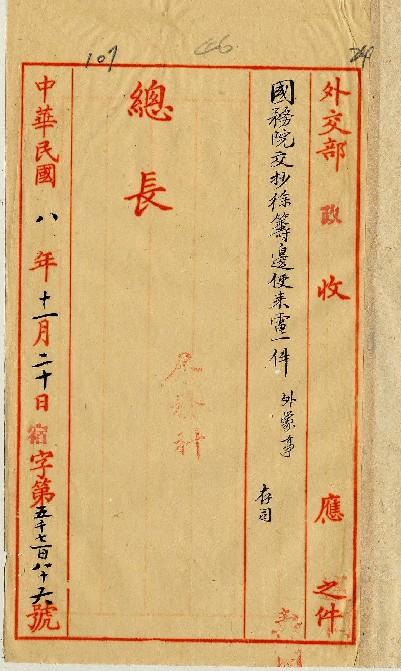 107
46
外交部 政 收 應 之件
國務院交抄徐籌邊使来電一件 外蒙事
存司
總長
中華民國 八 年 十一 月 二十 日 宿 字第 五千七百八十六 號